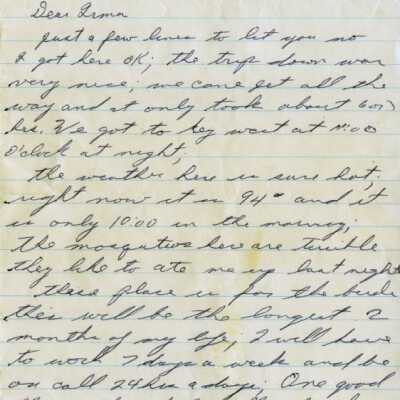 Dear Irma
just a few lines to let you no
I got here OK; the trip down was
very nice; we came jet all the
way and it only took about 6 or 7
hrs. We got to key west at 11:00
O'clock at night;
the weather here is sure hot;
right now it is 94° and it
is only 10:00 in the morning;
the mosquitos here are terrible
they like to ate me up last night
this place is for the birds
this will be the longest 2
months of my life, I will have
to work 7 days a week and be
on call 24 hrs a day; One good